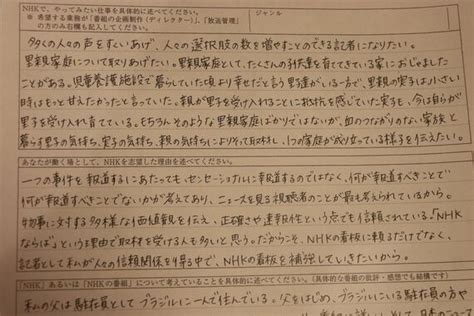 NHKで、やってみたい仕事を具体的に述べてください。
※ 希望する業務が「番組の企画制作(ディレクター)」、「放送管理」
の方のみ右欄も記入してください。
ジャンル
多くの人々の声をすくいあげ、人々の選択肢の数を増やすことのできる記者になりたい。
里親家庭について取りあげたい。里親家庭として、たくさんの子供達を育ててきている家におじゃました
ことがある。児童養護施設で暮らしていた頃より幸せだと言う里子がいる一方で、里親の実子は小さい
時はもっと甘えたかったと言っていた。親が里子を受け入れることに を感じていた実子も、今は自らが
里子を受け入れ育てている。もちろんそのような里親家庭ばかりではないが、血のつながりのない家族 と
暮らす里子の気持ち、実子の気持ち、親の気持ちによりそって取材し、1つの家庭が成り立っている様子を伝えたい。
あなたが働く場として、NHKを志望した理由を述べてください。
一つの事件を報道するにあたっても、センセーショナルに報道するのではなく、何が報道すべきことで
何が報道すべきことでないかが考えてあり、ニュースを見る視聴者のことが最も考えられているから。
物事に対する多様な価値観を伝え、正確さや速報性という点でも信頼されている。「NHK
ならば」という理由で取材を受ける人も多いと思う。だからこそ、NHKの看板に頼るだけでなく、
記者として私が人々の信頼関係を得る中で、NHKの看板を補強していきたいから。
NHK」あるいは「NHKの番組」について考えていることを具体的に述べてください。(具体的な番組の批評・感想でも結構です)
私の父は駐在員としてブラジルに一人で住んでいる。父をはじめ、ブラジルにいる駐在員の方や